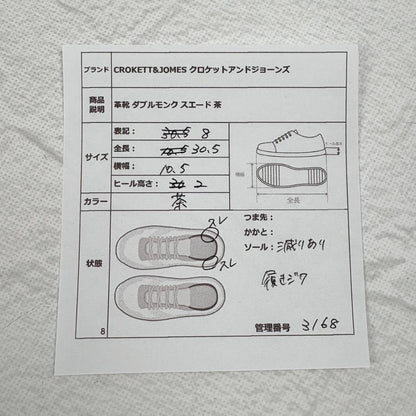 ブランド CROKETT&JOMES クロケットアンドジョーンズ
商品
説明
革靴 ダブルモンク スエード 茶
サイズ
表記： 30.5 8
全長： 10.5 30.5
横幅： 10.5
ヒール高さ： 2
ヒール高さ
横幅
全長
カラー 茶
状態
スレ
スレ
つま先：
かかと：
ソール： 減りあり
履きジワ
8
管理番号 3168